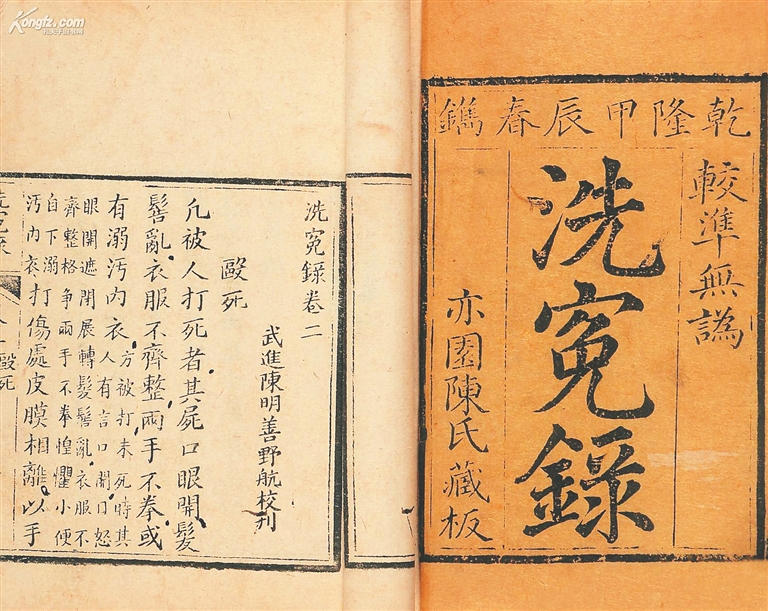 Kongfz.com
孔夫子旧书网
乾隆甲辰春鐫
較準無譌
洗冤録
亦園陳氏藏板
洗冤録卷二
武進陳明善野航校刋
毆死
凡被人打死者其屍口眼開髮
髻亂衣服不齊整兩手不拳或
有溺汚内衣方被打未死時其
人有言口開口怒
眼開遮閉展轉髮髻亂衣服不
齊整格争兩手不拳惶懼小便
自下溺
汚内衣打傷處皮膜相離以手
毆死